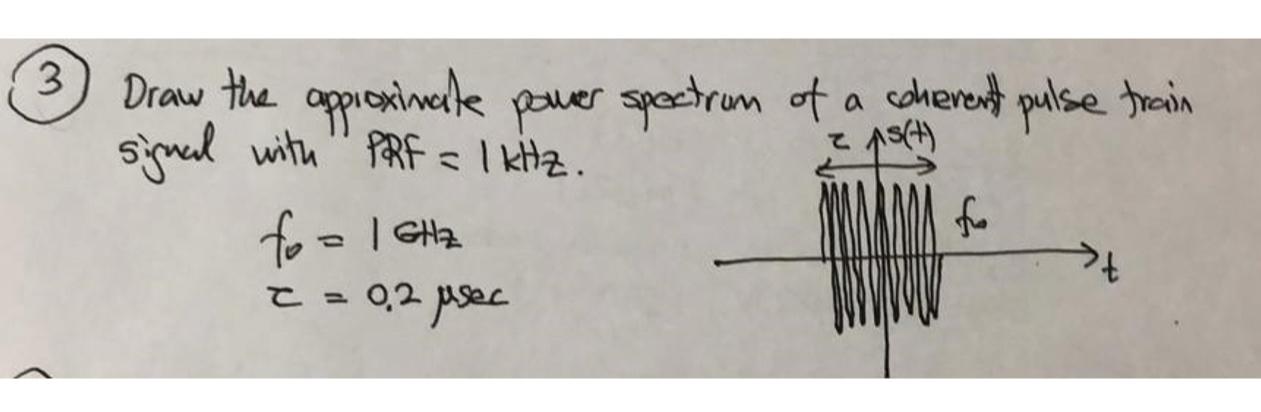 3 Draw the approximate power spectrum of a coherent pulse train
signal with PRF = 1 kHz.
τ s(t)
f₀ = 1 GHz
f₀
τ = 0,2 μsec
t